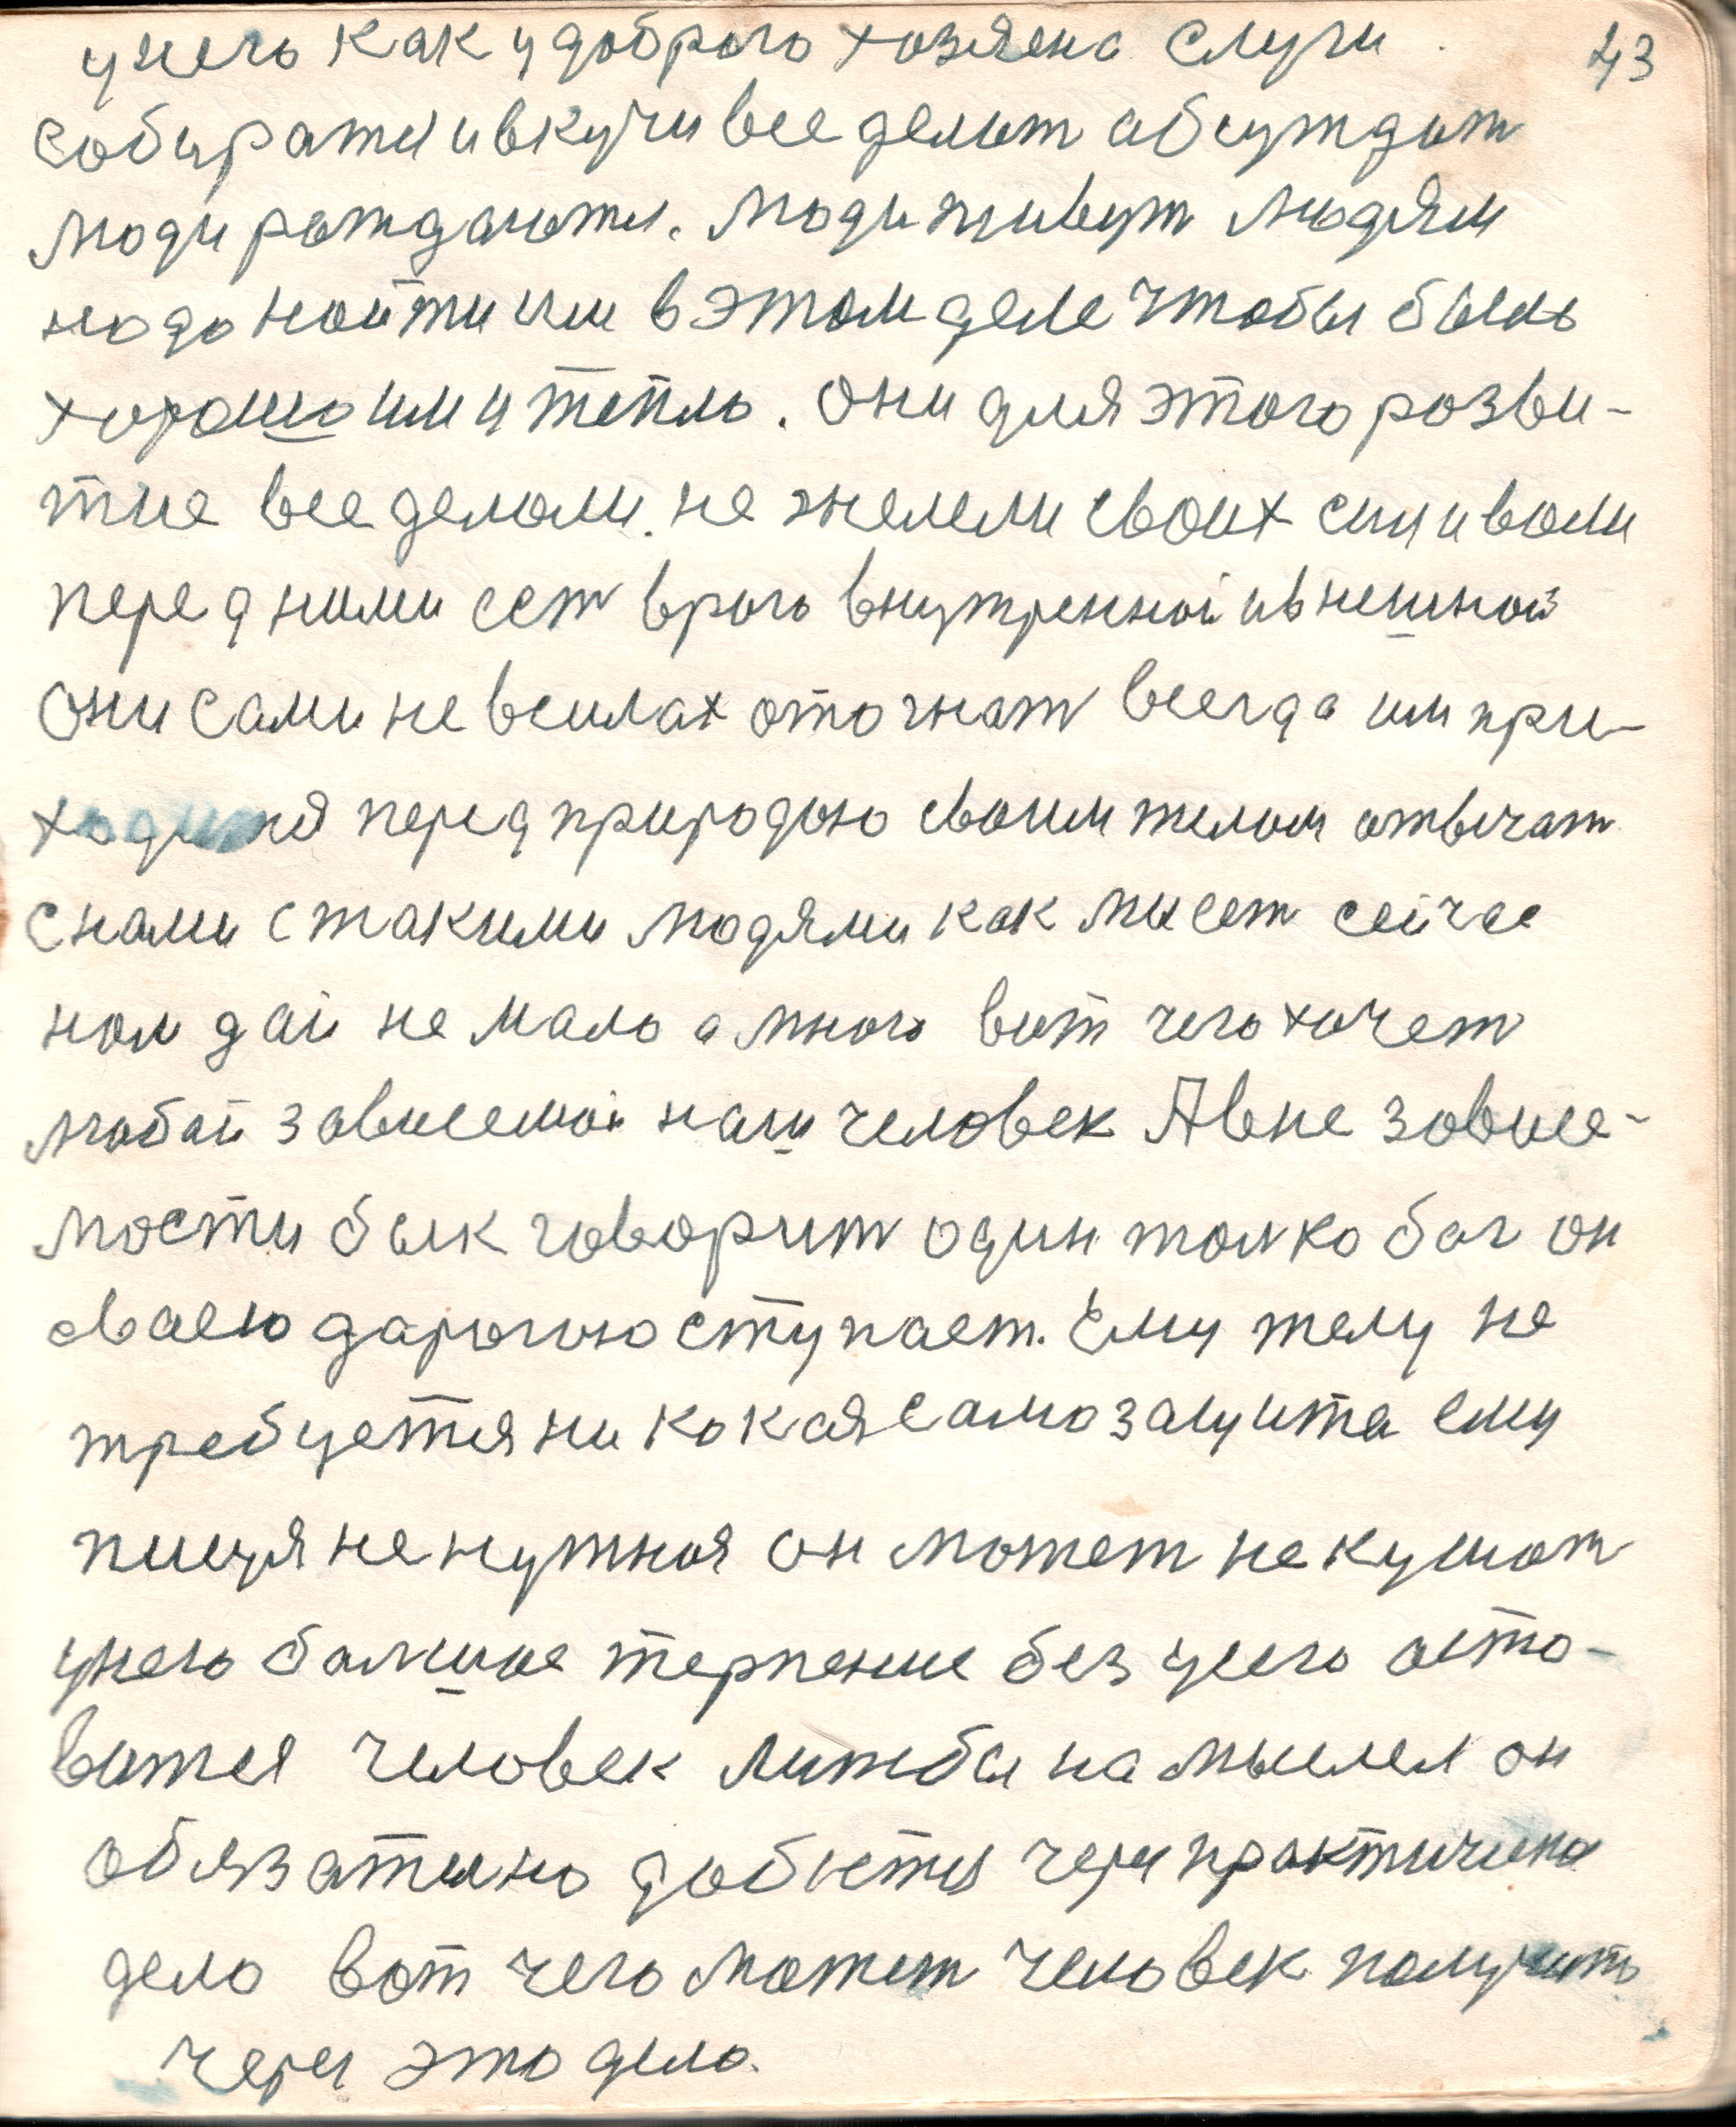 унего как у доброго хозяена слуги 43
собиратся и вкучи все делит абсуждат
люди рождаются. Люди живут людям
надо найти им в этом деле чтобы было
хорошо им и тепло. Они для этого розви-
тие все делали. не желели своих сил и воли
перед ними сет враго внутренной и внешной
Они сами не всилах отогнат всегда им при-
ходится перед природою своим телом отвечат
с нами с такими людями как мы сет сейчас
нам дай не мало а много вот чего хочет
любой зависемой наш человек А вне зависе-
мости бык говорит один толко бог он
сваею дарогою ступает. Ему телу не
требуется ни какая самозащита ему
пищя не нужная он может не кушат
унего балшое терпение без усего оста-
ватся человек лижбы намыслел он
обязателно добется через практичиско
дело вот чего может человек получить
через это дело.